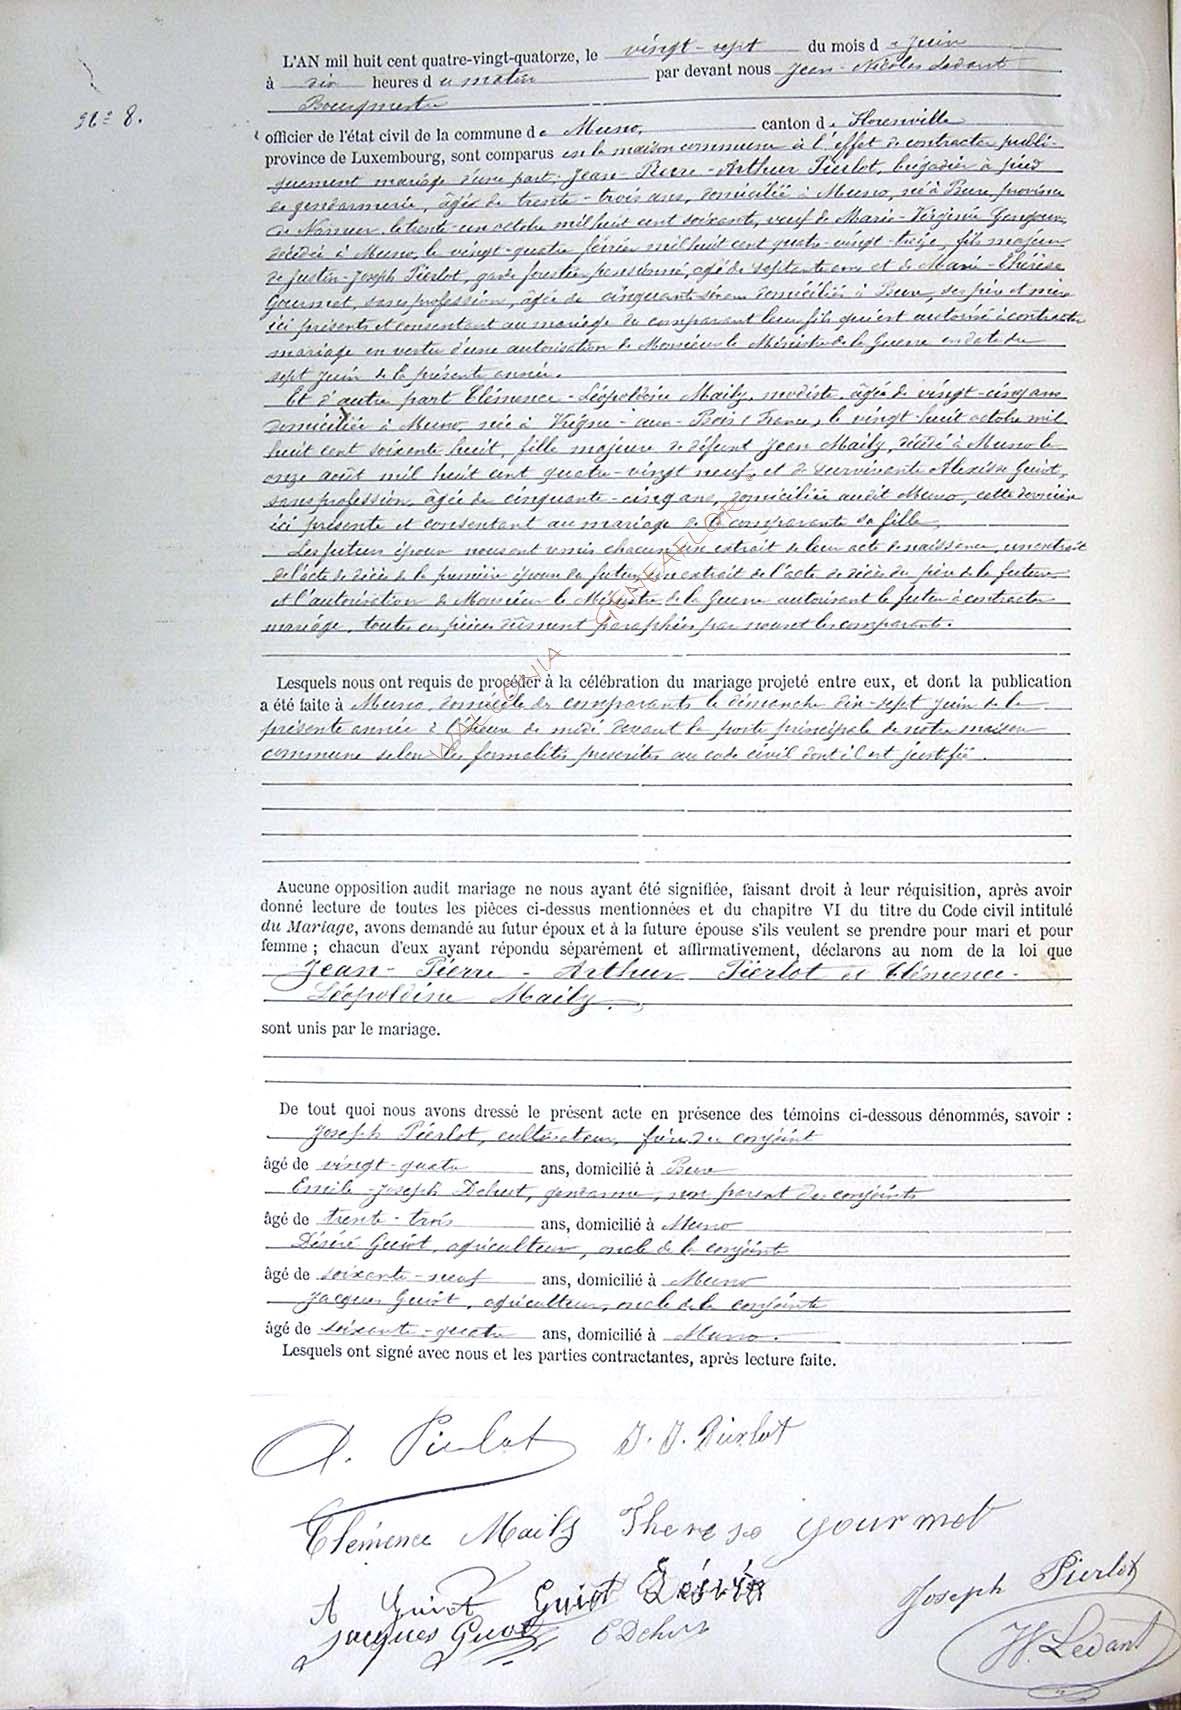 N° 8.
L'AN mil huit cent quatre-vingt-quatorze, le vingt-sept du mois de Juin
à dix heures du matin par devant nous Jean-Nicolas Ledant
Bourgmestre
officier de l'état civil de la commune de Muno, canton de Florenville
province de Luxembourg, sont comparus en la maison commune à l'effet de contracter publi-
quement mariage d'une part: Jean-Pierre-Arthur Pierlot, brigadier à pied
de gendarmerie, âgé de trente-trois ans, domicilié à Muno, né à Bure, province
de Namur, le trente-un octobre mil huit cent soixante, veuf de Marie-Virginie
décédée à Muno, le vingt-quatre février mil huit cent quatre-vingt-treize, fils majeur
de Justin-Joseph Pierlot, garde forestier pensionné, âgé de septante ans et de Marie-Thérèse
Gourmet, sans profession, âgée de cinquante ans domiciliés à Bure, ses père et mère
ici présents et consentant au mariage du comparant leur fils qui est autorisé à contracter
mariage en vertu d'une autorisation de Monsieur le Ministre de la Guerre en date du
sept Juin de la présente année.
Et d'autre part Clémence-Léopoldine Maily, modiste, âgée de vingt-cinq ans
domiciliée à Muno, née à Vrigne-aux-Bois (France), le vingt-huit octobre mil
huit cent soixante huit, fille majeure de défunt Jean Maily, décédé à Muno le
onze août mil huit cent quatre-vingt neuf, et de survivante Alexise Guiot,
sans profession, âgée de cinquante-cinq ans, domiciliée audit Muno, cette dernière
ici présente et consentant au mariage de la comparante sa fille.
Les futurs époux nous ont remis chacun un extrait de leur acte de naissance, un extrait
de l'acte de décès de la première épouse du futur, un extrait de l'acte de décès du père de la future
et l'autorisation de Monsieur le Ministre de la Guerre autorisant le futur à contracter
mariage, toutes ces pièces dûment paraphées par nous et les comparants.
Lesquels nous ont requis de procéder à la célébration du mariage projeté entre eux, et dont la publication
a été faite à Muno, domicile des comparants le dimanche dix-sept Juin de la
présente année à l'heure de midi devant la porte principale de notre maison
commune selon les formalités prescrites au code civil dont il est justifié.
Aucune opposition audit mariage ne nous ayant été signifiée, faisant droit à leur réquisition, après avoir
donné lecture de toutes les pièces ci-dessus mentionnées et du chapitre VI du titre du Code civil intitulé
du Mariage, avons demandé au futur époux et à la future épouse s'ils veulent se prendre pour mari et pour
femme ; chacun d'eux ayant répondu séparément et affirmativement, déclarons au nom de la loi que
Jean-Pierre-Arthur Pierlot et Clémence-
Léopoldine Maily.
sont unis par le mariage.
De tout quoi nous avons dressé le présent acte en présence des témoins ci-dessous dénommés, savoir :
Joseph Pierlot, cultivateur, frère du conjoint
âgé de vingt-quatre ans, domicilié à Bure
Emile-Joseph Dehut, gendarme, non parent des conjoints
âgé de trente-trois ans, domicilié à Muno
Désiré Guiot, agriculteur, oncle de la conjointe
âgé de soixante-neuf ans, domicilié à Muno
Jacques Guiot, agriculteur, oncle de la conjointe
âgé de soixante-quatre ans, domicilié à Muno.
Lesquels ont signé avec nous et les parties contractantes, après lecture faite.
A. Pierlot J. J. Pierlot
Clémence Maily Therese gourmet
A Guiot Guiot Désiré Joseph Pierlot
Jacques Guiot E Dehut N. Ledant
WALLONIA GENEAFLORE